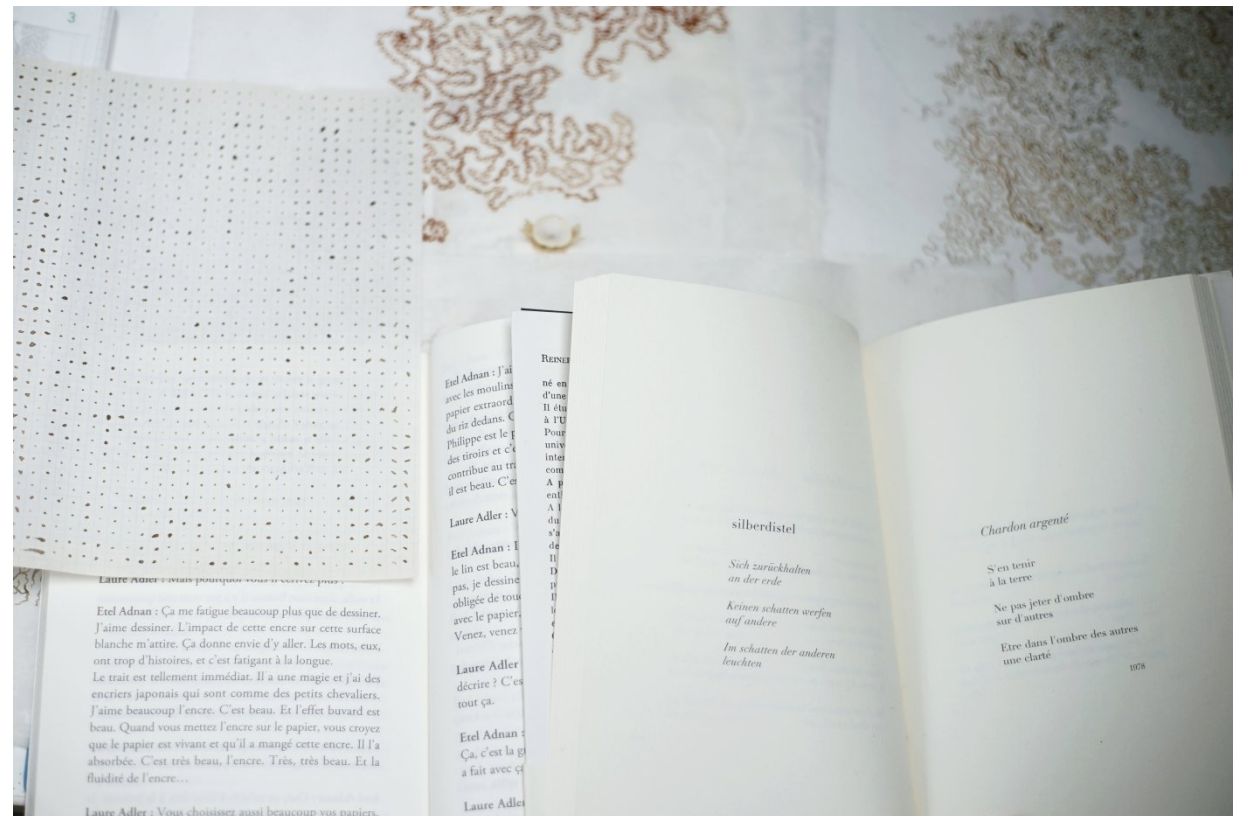 3
Laure Adler : Mais pourquoi vous n'écrivez plus ?
Etel Adnan : Ça me fatigue beaucoup plus que de dessiner.
J'aime dessiner. L'impact de cette encre sur cette surface
blanche m'attire. Ça donne envie d'y aller. Les mots, eux,
ont trop d'histoires, et c'est fatigant à la longue.
Le trait est tellement immédiat. Il a une magie et j'ai des
encriers japonais qui sont comme des petits chevaliers.
J'aime beaucoup l'encre. C'est beau. Et l'effet buvard est
beau. Quand vous mettez l'encre sur le papier, vous croyez
que le papier est vivant et qu'il a mangé cette encre. Il l'a
absorbée. C'est très beau, l'encre. Très, très beau. Et la
fluidité de l'encre...
Laure Adler : Vous choisissez aussi beaucoup vos papiers.
Etel Adnan : J'ai
avec les moulins
papier extraord
du riz dedans. C
Philippe est le p
des tiroirs et c'e
contribue au tra
il est beau. C'es
Laure Adler : V
Etel Adnan : I
le lin est beau,
pas, je dessine
obligée de tou
avec le papier.
Venez, venez
Laure Adler
décrire ? C'es
tout ça.
Etel Adnan :
Ça, c'est la g
a fait avec ça
Laure Adler
REINE
né en
d'une
Il étu
à l'U
Pour
univ
inter
com
A p
ent
A l
du
s'a
de
Il
silberdistel
Sich zurückhalten
an der erde
Keinen schatten werfen
auf andere
Im schatten der anderen
leuchten
Chardon argenté
S'en tenir
à la terre
Ne pas jeter d'ombre
sur d'autres
Etre dans l'ombre des autres
une clarté
1978